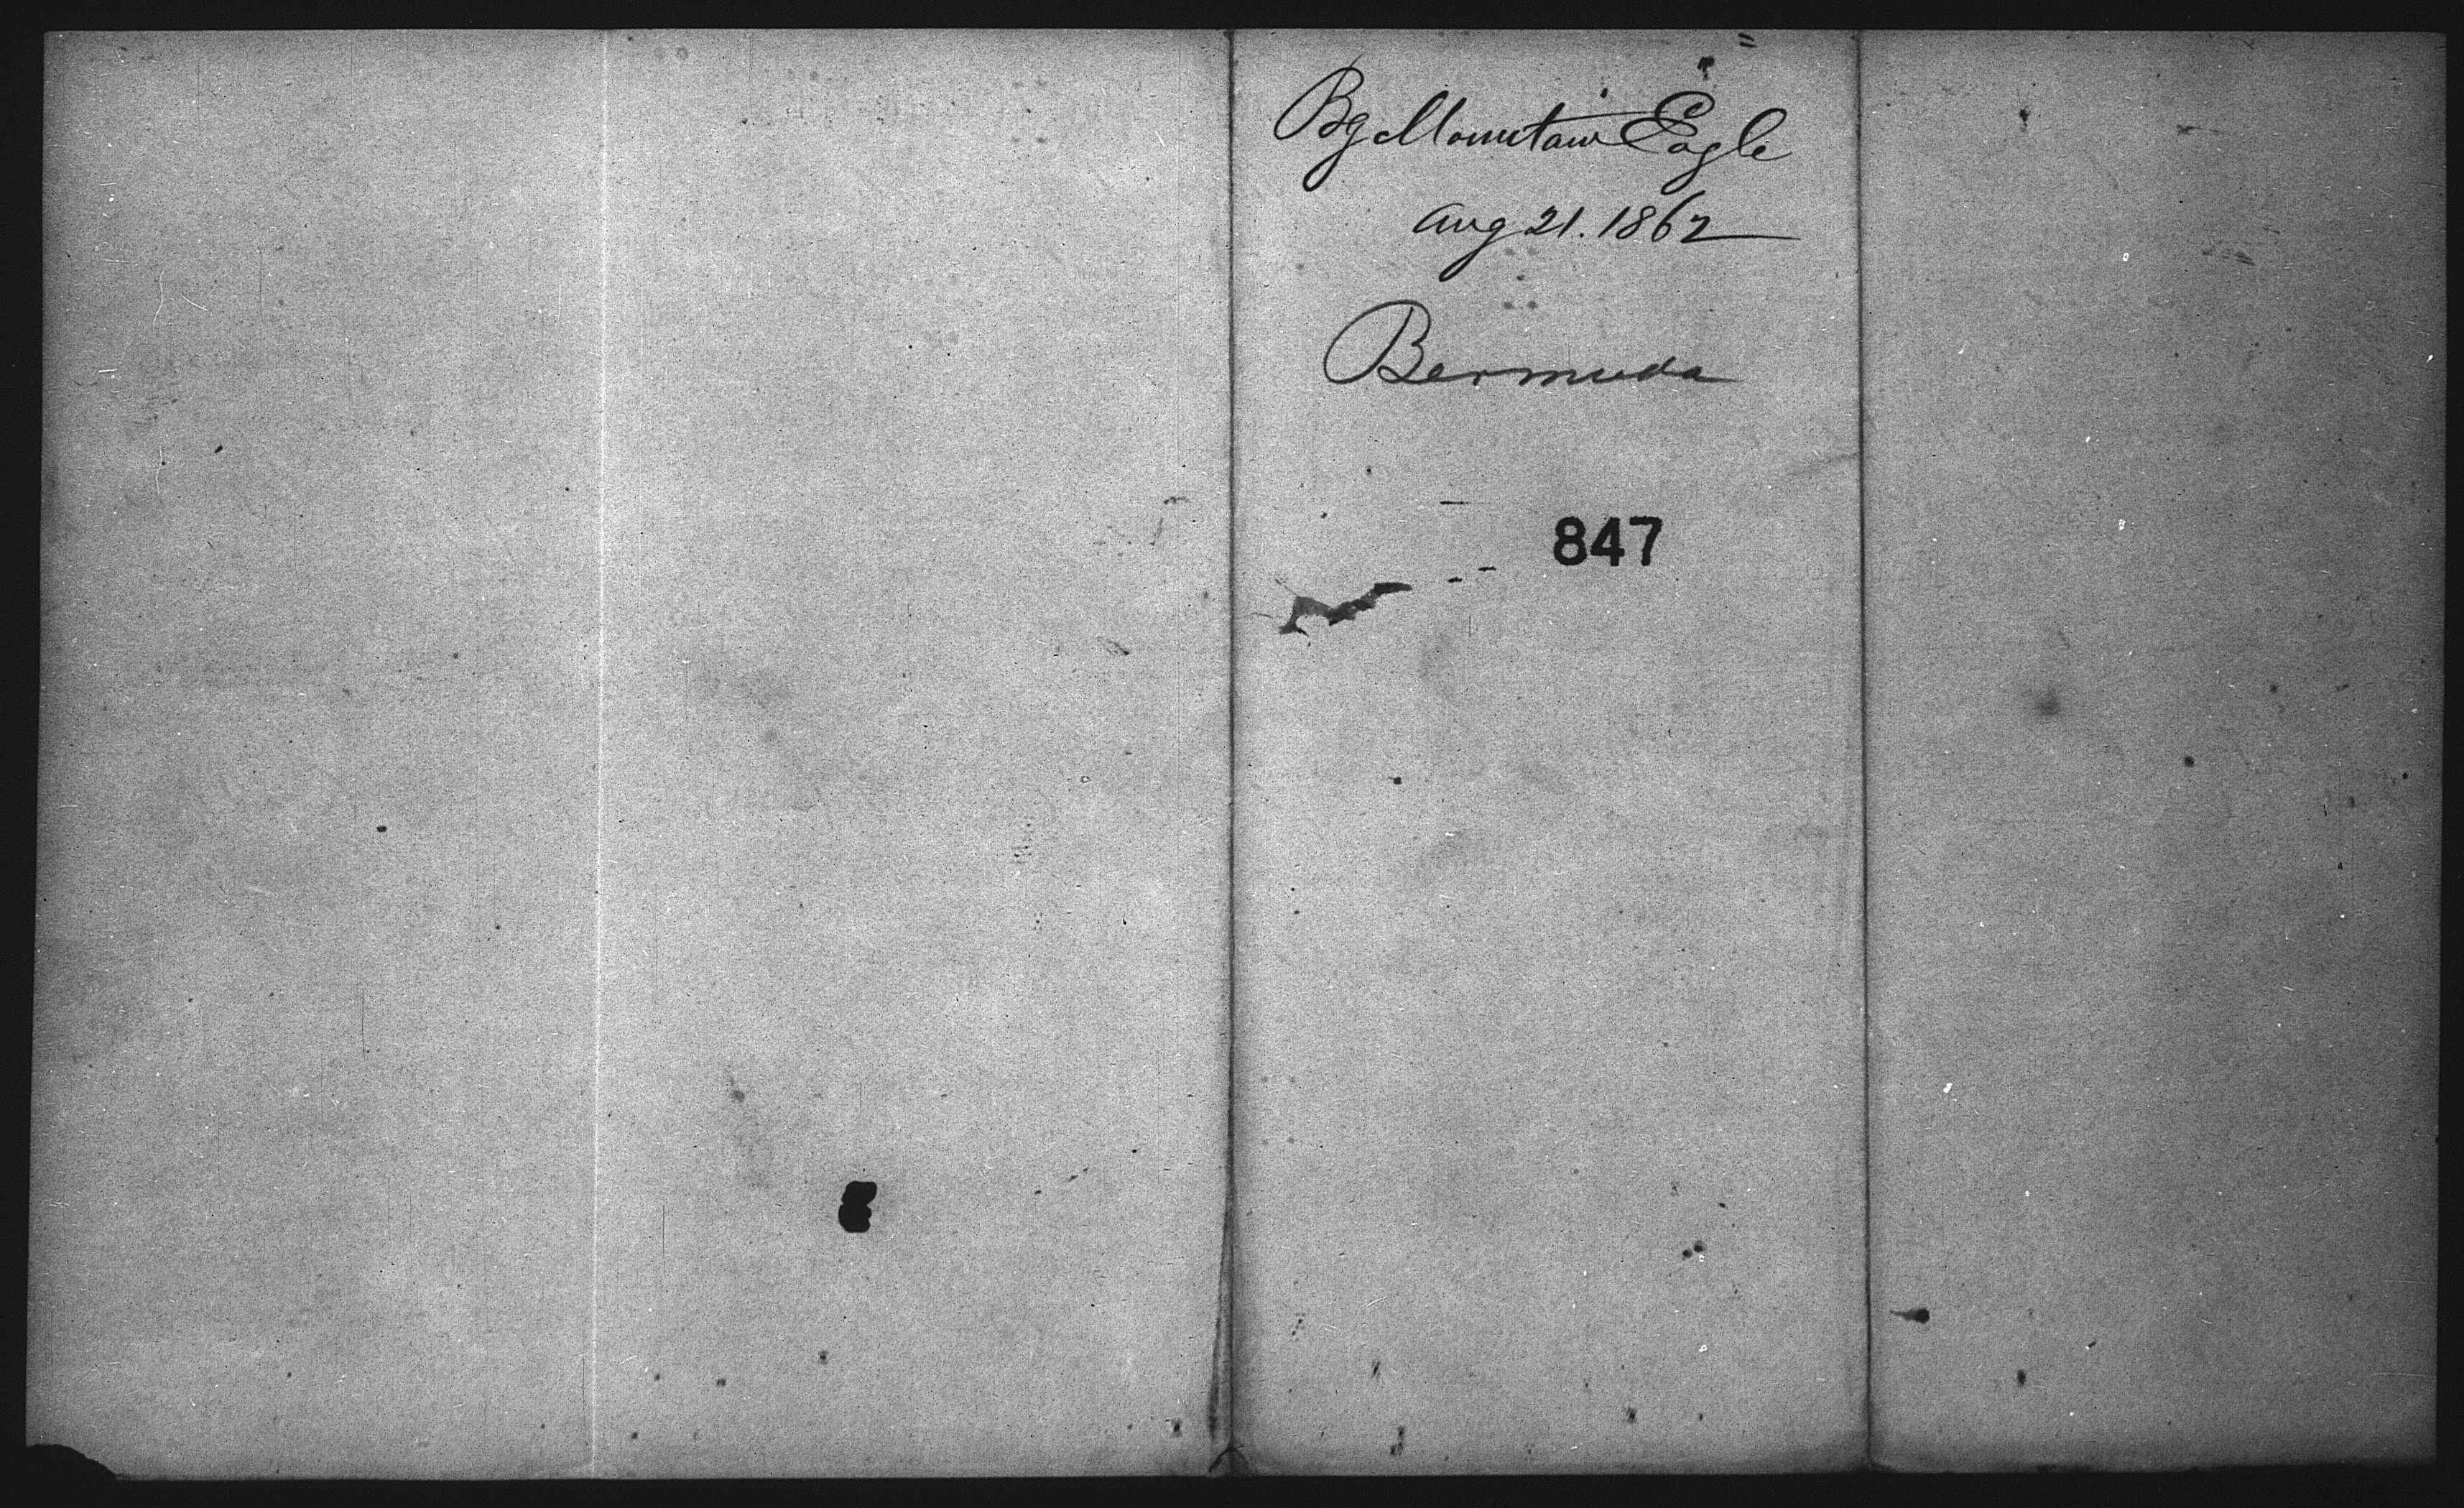 Bg Mountain Eagle
Aug 21. 1862
Bermuda
847